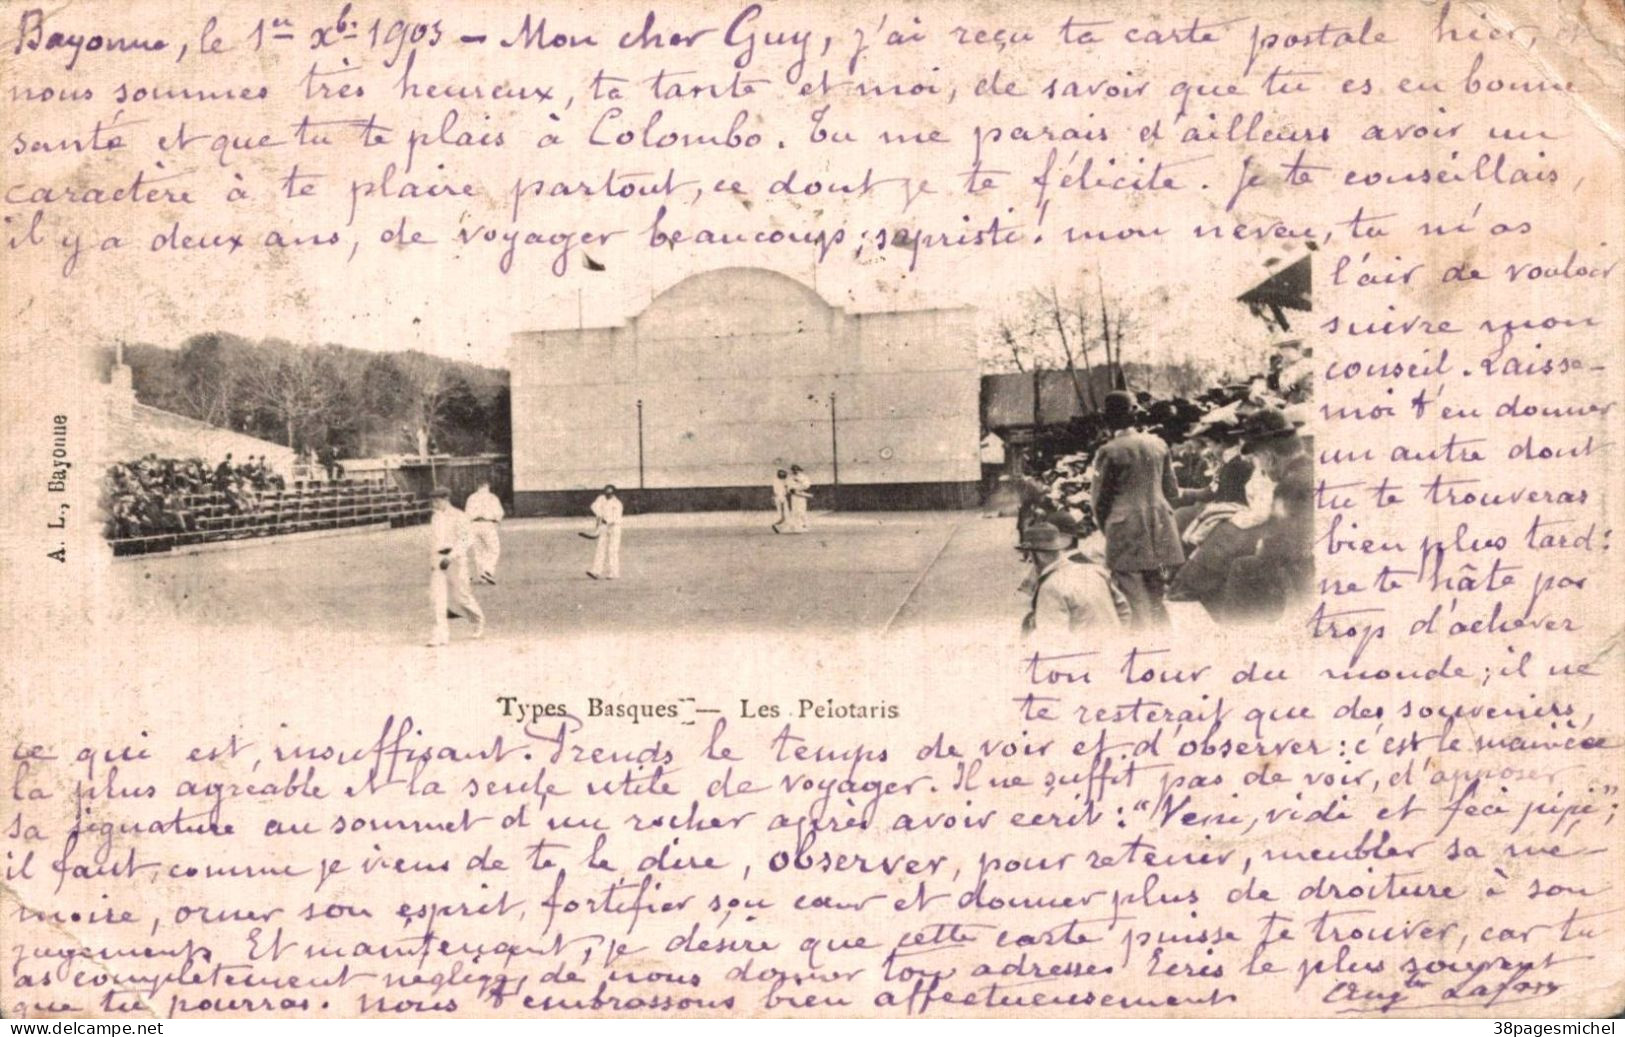 Bayonne, le 1er xbre 1903 — Mon cher Guy, j'ai reçu ta carte postale hier, et
nous sommes très heureux, ta tante et moi, de savoir que tu es en bonne
santé et que tu te plais à Colombo. Tu me parais d'ailleurs avoir un
caractère à te plaire partout, ce dont je te félicite. Je te conseillais,
il y a deux ans, de voyager beaucoup; sapristi! mon neveu, tu m'as
l'air de vouloir
suivre mon
conseil. Laisse-
moi t'en donner
un autre dont
tu te trouveras
bien plus tard:
ne te hâte pas
trop d'achever
ton tour du monde; il ne
te resterait que des souvenirs,
A. L., Bayonne
Types Basques — Les Pelotaris
ce qui est insuffisant. Prends le temps de voir et d'observer: c'est la manière
la plus agréable et la seule utile de voyager. Il ne suffit pas de voir, d'apposer
sa signature au sommet d'un rocher après avoir écrit: "Veni, vidi et feci pipi";
il faut, comme je viens de te le dire, observer, pour retenir, meubler sa mé-
moire, orner son esprit, fortifier son cœur et donner plus de droiture à son
jugement. Et maintenant, je désire que cette carte puisse te trouver, car tu
as complètement négligé de nous donner ton adresse. Ecris le plus souvent
que tu pourras. Nous t'embrassons bien affectueusement
38pagesmichel